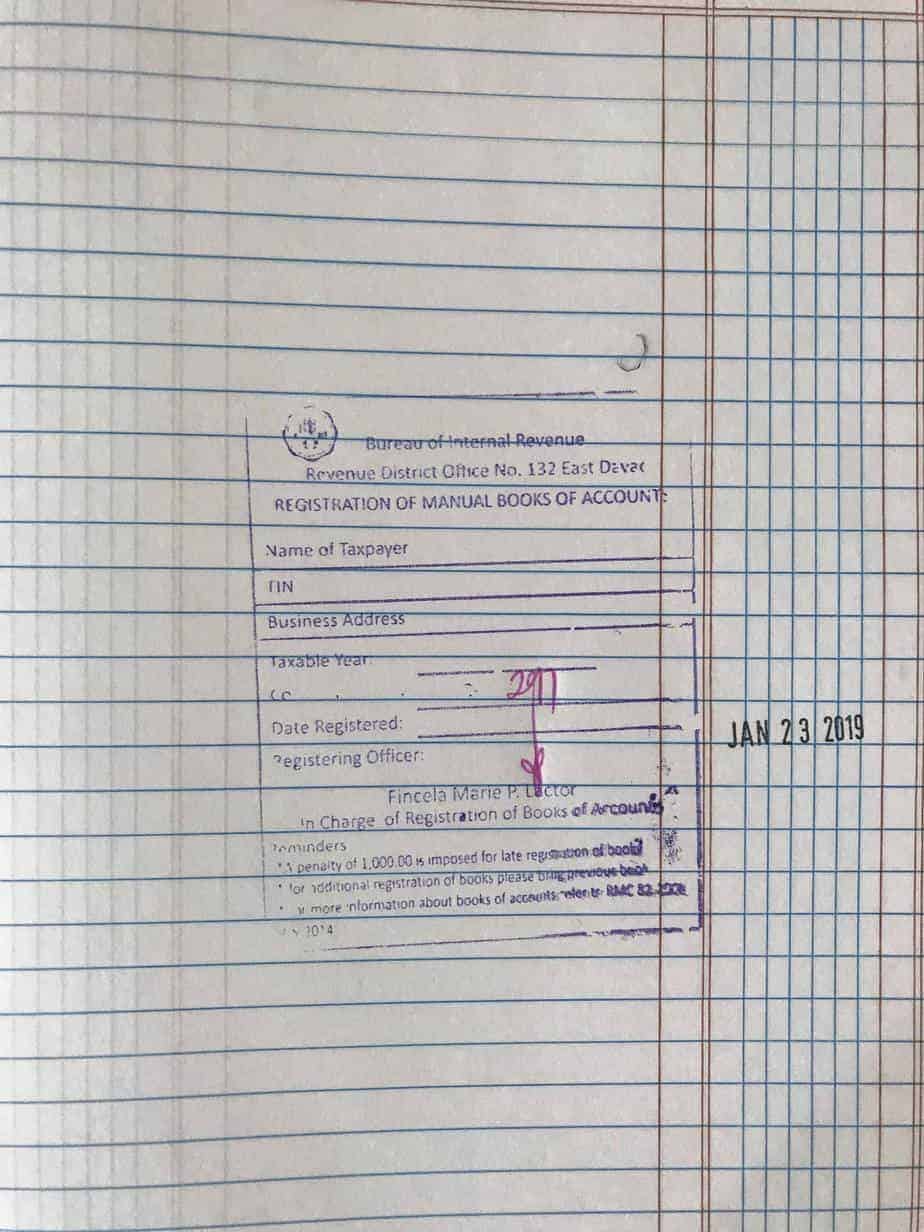 Bureau of Internal Revenue
Revenue District Office No. 132 East Davac
REGISTRATION OF MANUAL BOOKS OF ACCOUNT:
Name of Taxpayer
TIN
Business Address
Taxable Year:
Date Registered:
JAN 23 2019
Registering Officer:
Fincela Marie P. Lector
In Charge of Registration of Books of Accounts
Reminders
* A penalty of 1,000.00 is imposed for late registration of books
* for additional registration of books please bring previous book
* more information about books of accounts refer to RMC 82-2008
2014